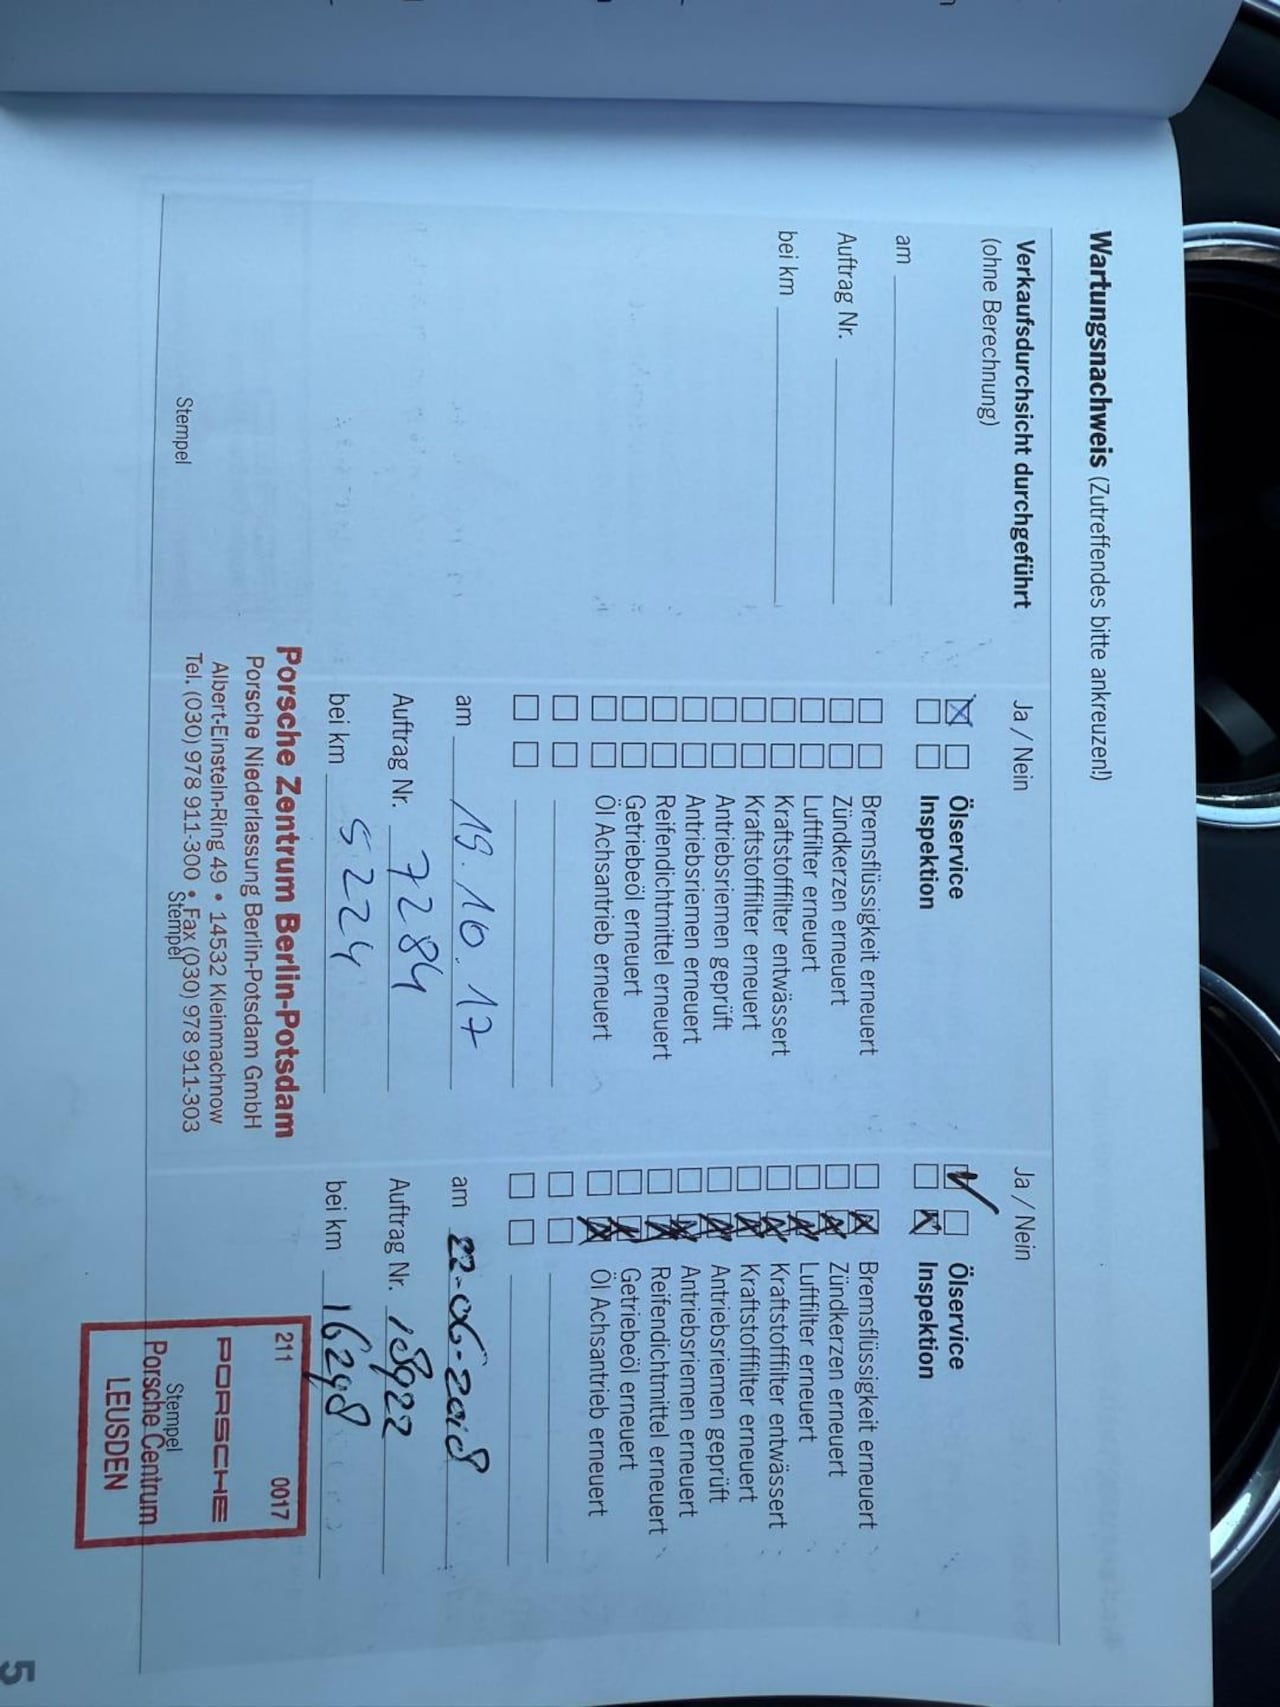 Wartungsnachweis (Zutreffendes bitte ankreuzen!)
Verkaufsdurchsicht durchgeführt
(ohne Berechnung)
am
Auftrag Nr.
bei km
Stempel
Ja / Nein
Ölservice
Inspektion
Bremsflüssigkeit erneuert
Zündkerzen erneuert
Luftfilter erneuert
Kraftstofffilter entwässert
Kraftstofffilter erneuert
Antriebsriemen geprüft
Antriebsriemen erneuert
Reifendichtmittel erneuert
Getriebeöl erneuert
Öl Achsantrieb erneuert
am 19.10.17
Auftrag Nr. 7284
bei km 5224
Porsche Zentrum Berlin-Potsdam
Porsche Niederlassung Berlin-Potsdam GmbH
Albert-Einstein-Ring 49 • 14532 Kleinmachnow
Tel. (030) 978 911-300 • Fax (030) 978 911-303
Stempel
Ja / Nein
Ölservice
Inspektion
Bremsflüssigkeit erneuert
Zündkerzen erneuert
Luftfilter erneuert
Kraftstofffilter entwässert
Kraftstofffilter erneuert
Antriebsriemen geprüft
Antriebsriemen erneuert
Reifendichtmittel erneuert
Getriebeöl erneuert
Öl Achsantrieb erneuert
am 22-06-2018
Auftrag Nr. 18922
bei km 16298
211 0017
PORSCHE
Stempel
Porsche Centrum
LEUSDEN
5